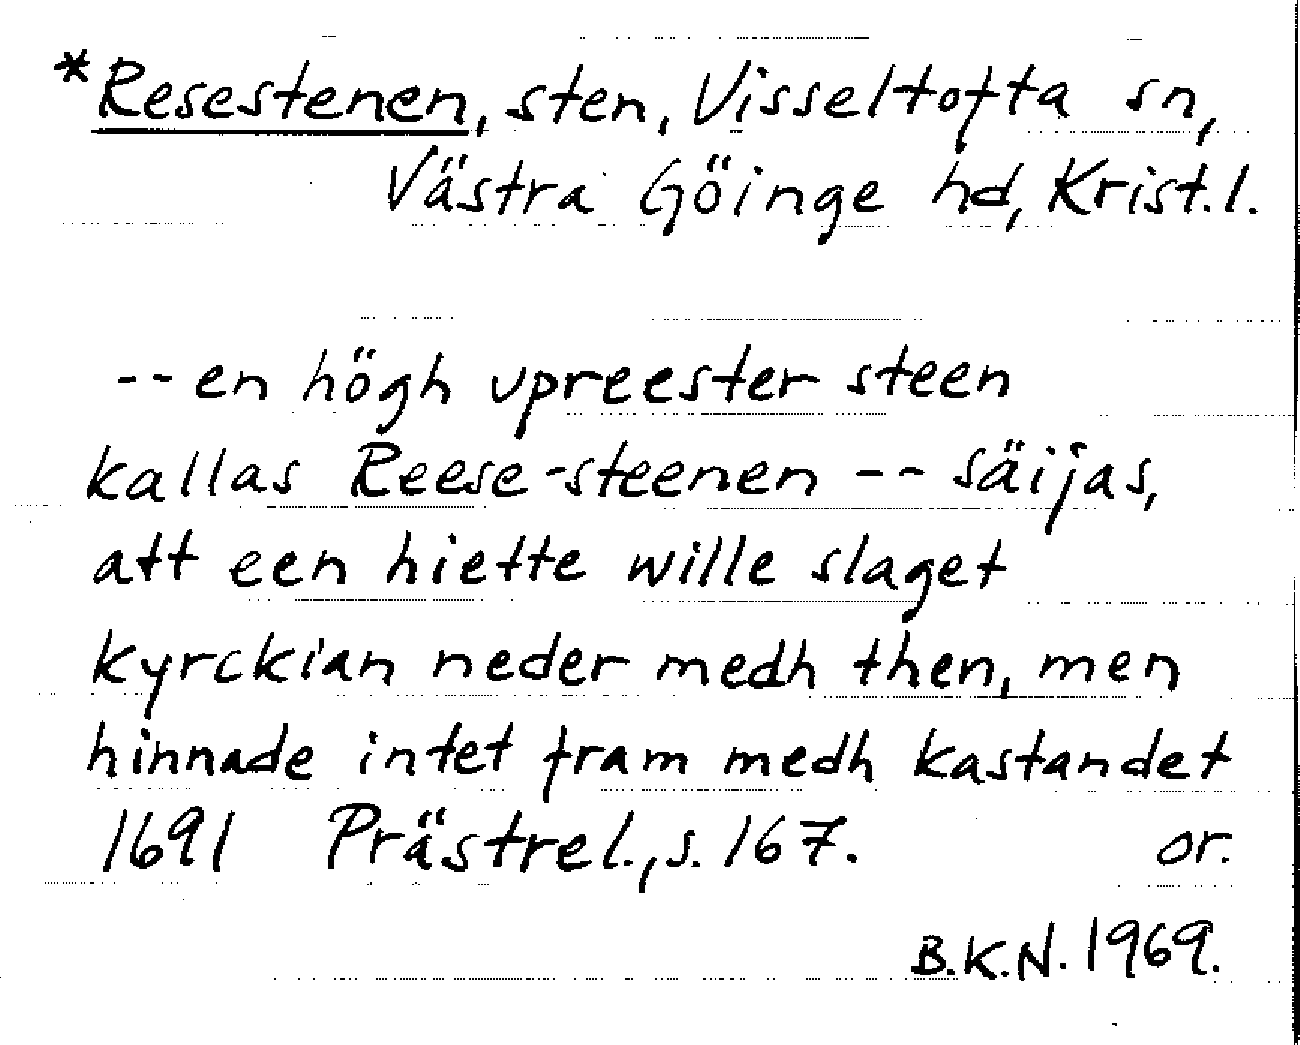 *Resestenen, sten, Visseltofta sn,
Västra Göinge hd, Krist.l.
-- en högh upreester steen
kallas Reese-steenen -- säijas,
att een hiette wille slaget
kyrckian neder medh then, men
hinnade intet fram medh kastandet
1691 Prästrel., s. 167. or.
B.K.N. 1969.